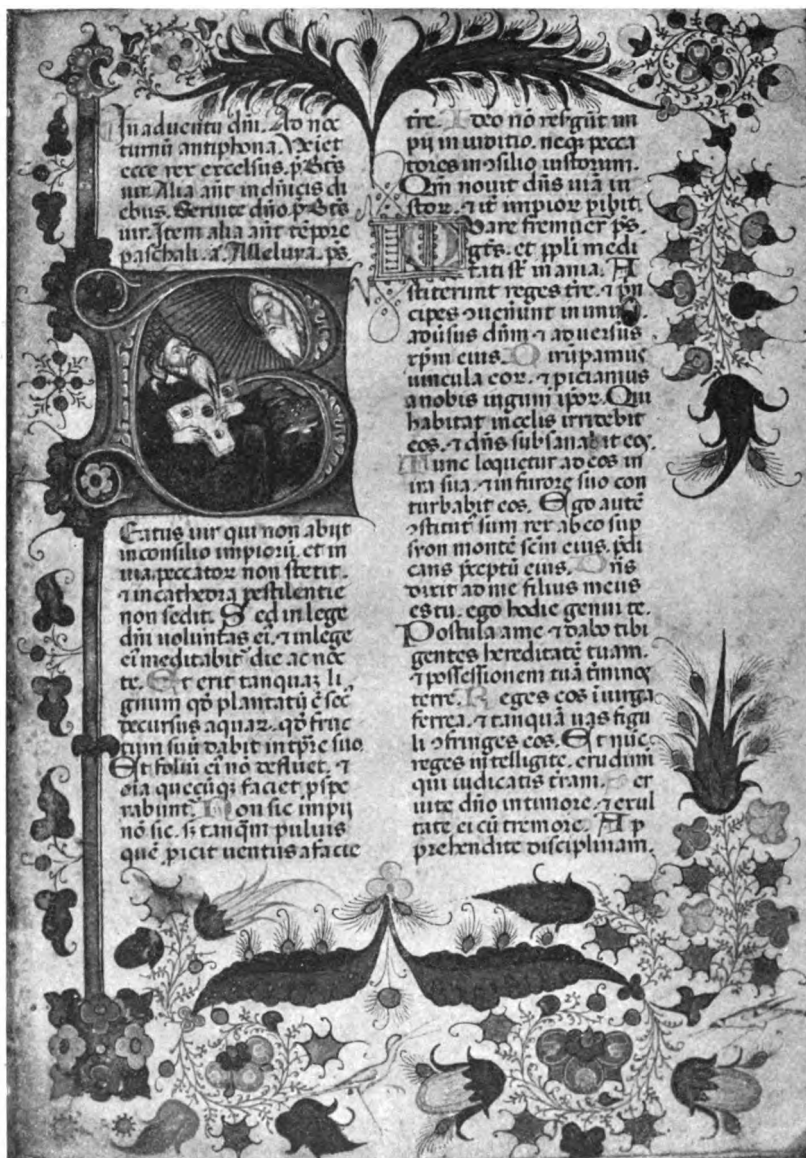 In aduentu dñi. Ad noc
turnũ antiphona. Veniet
ecce rex excelsus. p̃s Bt̃s
uir. Alia añt in dñicis di
ebus. Seruite dño. p̃s Bt̃s
uir. Item alia añt tẽpore
paschali. a. Alleluya. ps̃
Eatus uir qui non abijt
in consilio impiorũ. et in
uia peccator non stetit.
⁊ in cathedra pestilentie
non sedit. Sed in lege
dñi uoluntas ei. ⁊ in lege
ei meditabit̃ die ac noc
te. Et erit tanquaʒ li
gnum qđ plantatũ ẽ sec̃
decursus aquaʀ. qđ fruc
tum suũ dabit in tp̃re suo.
Et foliũ ei nõ defluet. ⁊
oĩa quecũqʒ faciet p̃spe
rabunt̃. Non sic impii
nõ sic. sʒ tanq̃m puluis
quẽ p̃icit uentus a facie
tr̃e. Ideo nõ res̃gũt im
pij in iuditio. neqʒ pecca
tores in ɔsilio iustorum.
Qm̃ nouit dñs uiã iu
stoʀ. ⁊ it̃ impioʀ p̱ibit.
Quare fremuer̃ ps̃.
gẽts. et pp̃li medi
tati st̃ inania. A
stiterunt reges tr̃e. ⁊ p̃n
cipes ɔuen̄unt in unũ.
adũsus dñm ⁊ aduersus
xp̃m eius. Dirũpamus
uincula eoʀ. ⁊ p̃iciamus
a nobis iugum ip̃oʀ. Qui
habitat in celis irridebit
eos. ⁊ dñs subsanabit eoʒ
Tunc loquetur ad eos in
ira sua. ⁊ in furore suo con
turbabit eos. Ego autẽ
ɔstitut̃ sum rex ab eo sup̱
syon montẽ sc̃m eius. p̃di
cans p̃ceptũ eius. Dñs
dixit ad me filius meus
es tu. ego hodie genui te.
Postula a me ⁊ dabo tibi
gentes hereditatẽ tuam.
⁊ possessionem tuã t̃minoʒ
terre. Reges eos ĩ uirga
ferrea. ⁊ tanquã uas figu
li ɔfringes eos. Et nũc
reges intelligite. erudimĩ
qui iudicatis tr̃am. Ser
uite dño in timore. ⁊ exul
tate ei cũ tremore. Ap
prehendite disciplinam.